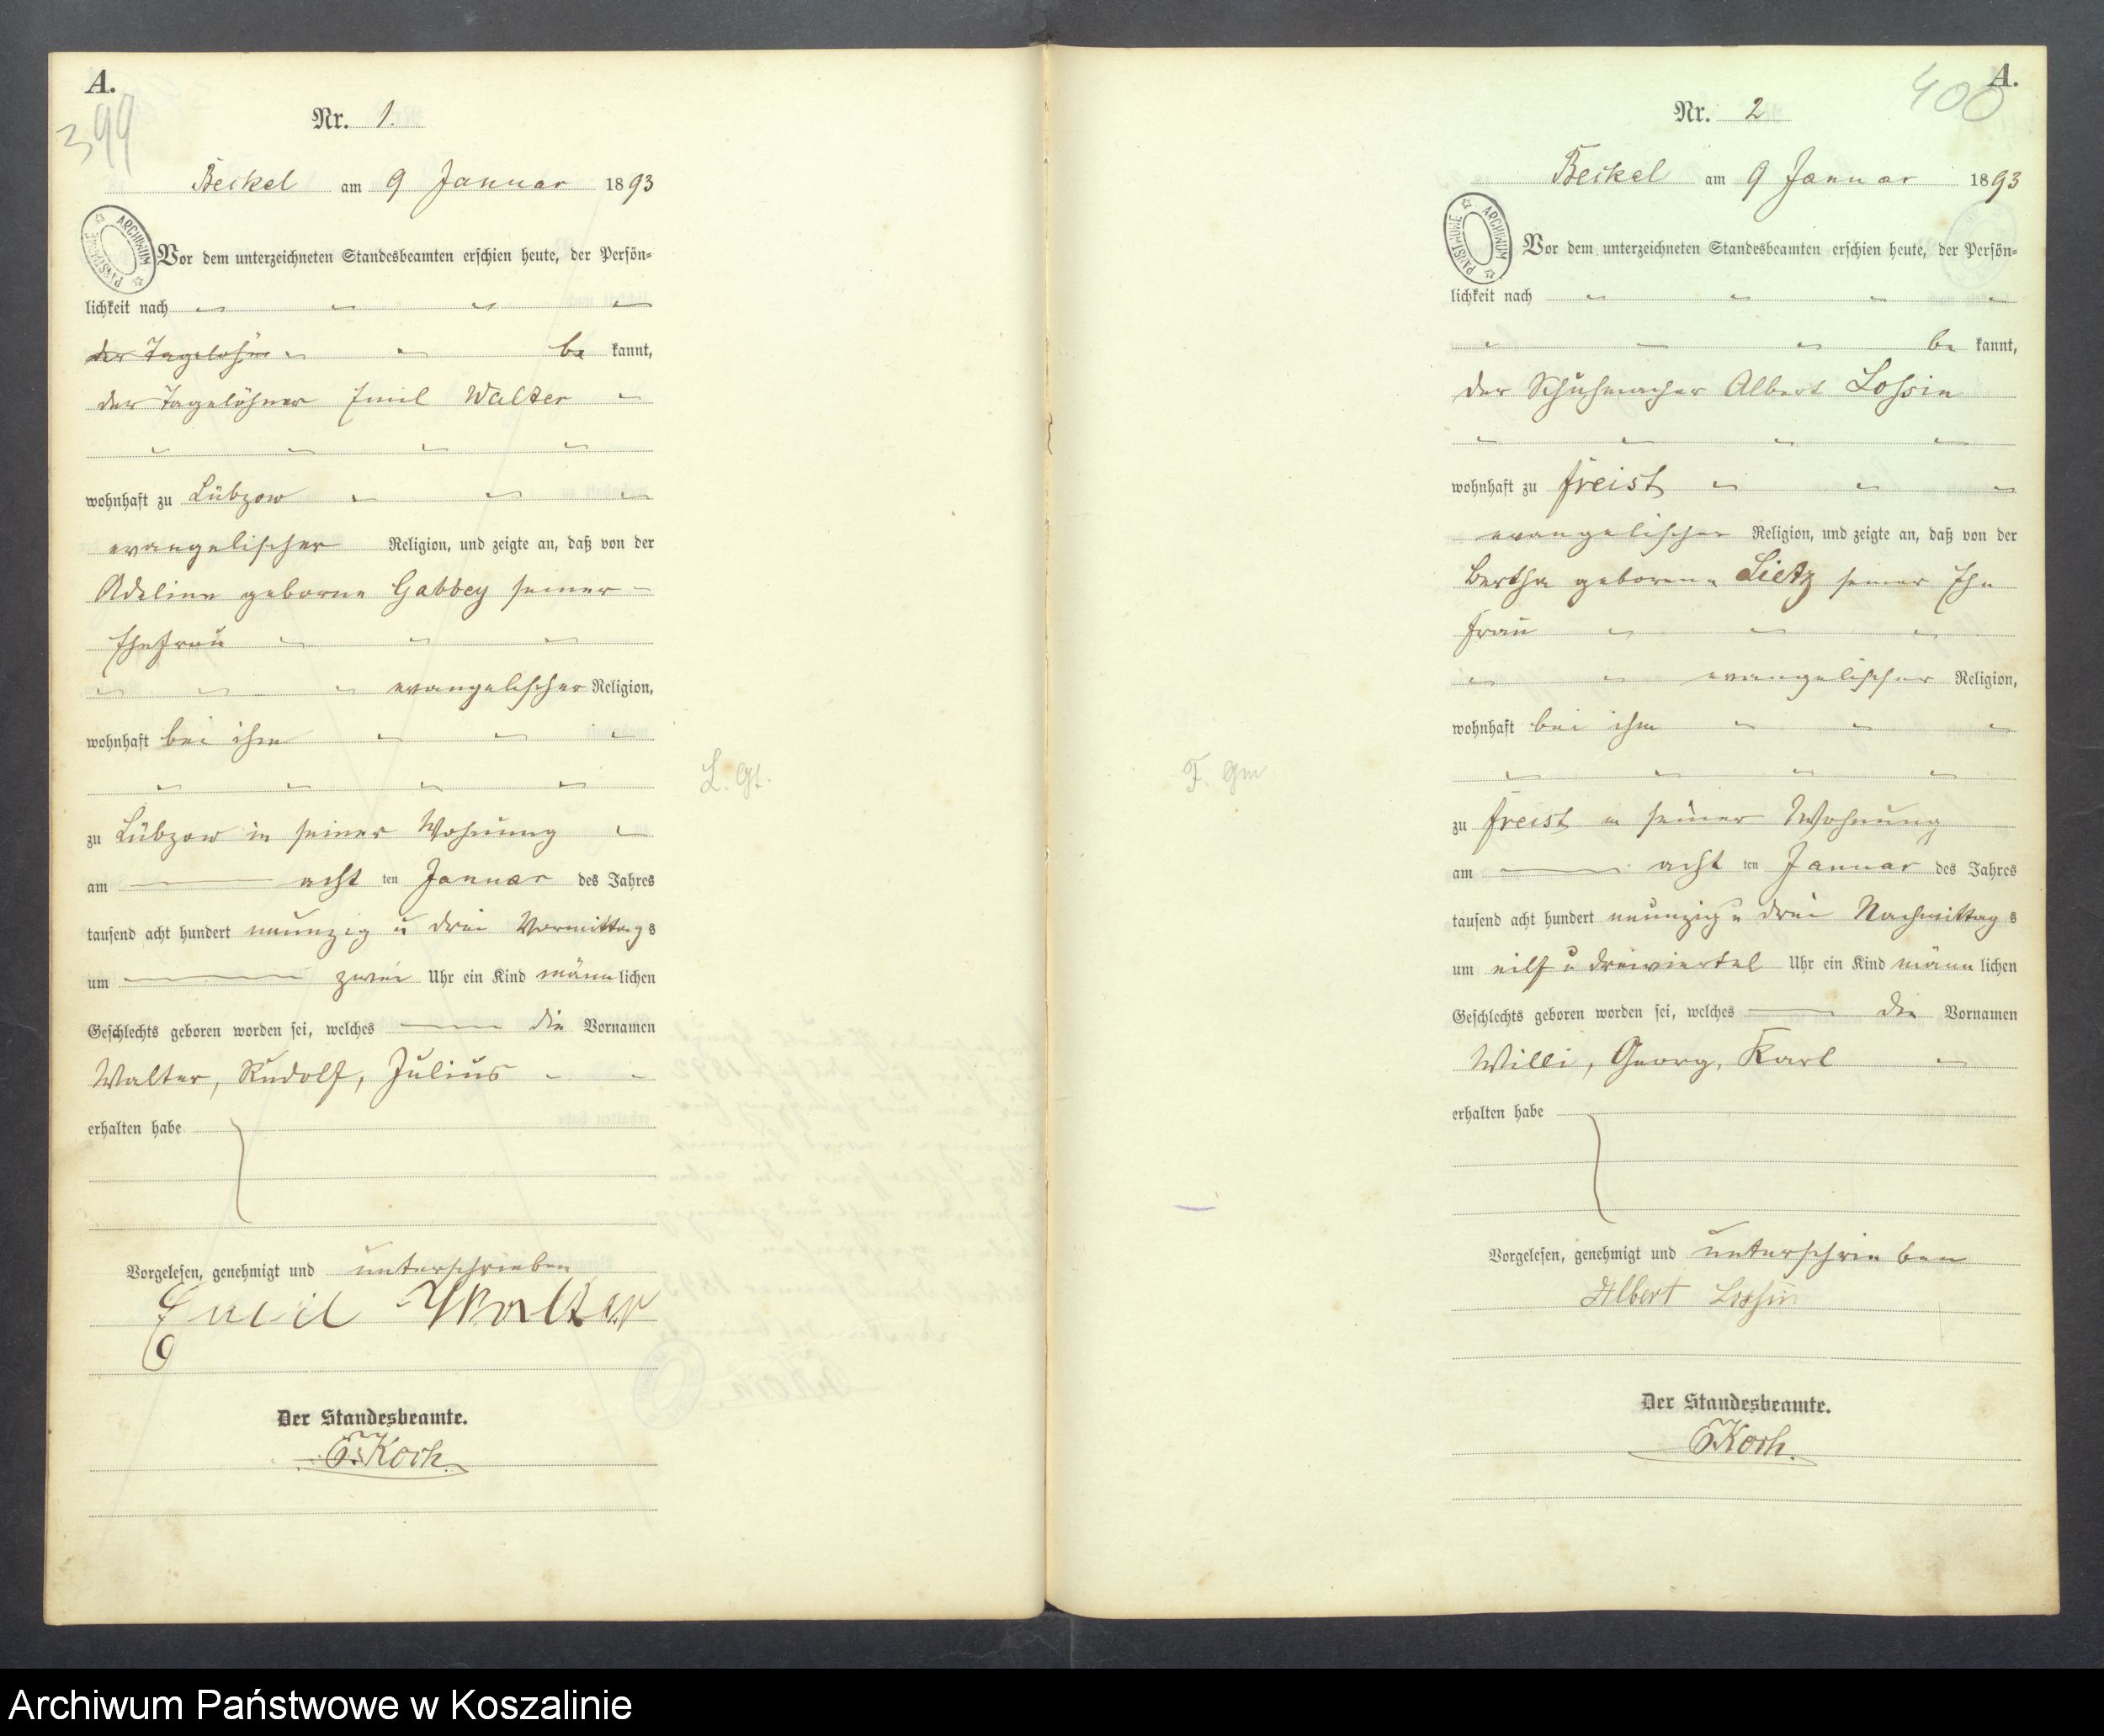 A.
399
Nr. 1.
Beckel am 9 Januar 1893
Vor dem unterzeichneten Standesbeamten erschien heute, der Persön=
lichkeit nach
der Tagelöhn be kannt,
der Tagelöhner Emil Walter
wohnhaft zu Lübzow
evangelischer Religion, und zeigte an, daß von der
Adeline geborne Gabbey seiner
Ehefrau
evangelischer Religion,
wohnhaft bei ihm
zu Lübzow in seiner Wohnung
am acht ten Januar des Jahres
tausend acht hundert neunzig u drei Vormittags
um zwei Uhr ein Kind männlichen
Geschlechts geboren worden sei, welches die Vornamen
Walter, Rudolf, Julius
erhalten habe
Vorgelesen, genehmigt und unterschrieben
Emil Walter
Der Standesbeamte.
Koch.
L. Gt.
ARCHIWUM PAŃSTWOWE
A.
400
Nr. 2
Beckel am 9 Januar 1893
Vor dem unterzeichneten Standesbeamten erschien heute, der Persön=
lichkeit nach
be kannt,
der Schuhmacher Albert Lossin
wohnhaft zu Freist
evangelischer Religion, und zeigte an, daß von der
Bertha geborene Lietz seiner Ehe
frau
evangelischer Religion,
wohnhaft bei ihm
zu Freist in seiner Wohnung
am acht ten Januar des Jahres
tausend acht hundert neunzig u drei Nachmittag s
um eilf u dreiviertel Uhr ein Kind männ lichen
Geschlechts geboren worden sei, welches die Vornamen
Willi, Georg, Karl
erhalten habe
Vorgelesen, genehmigt und unterschrieben
Albert Lossin
Der Standesbeamte.
Koch.
F. Gm
ARCHIWUM PAŃSTWOWE
Archiwum Państwowe w Koszalinie